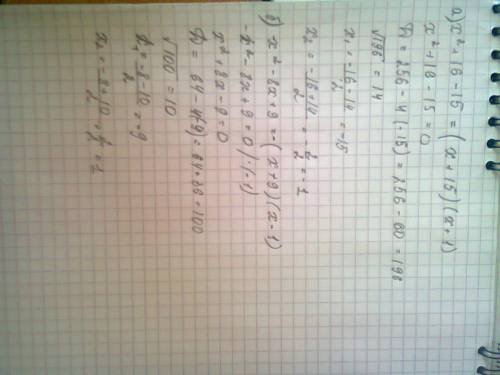 а) x²+16-15=(x+15)(x+1)
x²+16-15=0
D=256-4(-15)=256-60=196
√196=14
x₁=-16-14/2=-15
x₂=-16+14/2=2/2=-1
б) -x²-8x+9=-(x+9)(x-1)
-x²-8x+9=0 |·(-1)
x²+8x-9=0
D=64-4(-9)=64+36=100
√100=10
x₁=-8-10/2=-9
x₂=-8+10/2=2/2=1